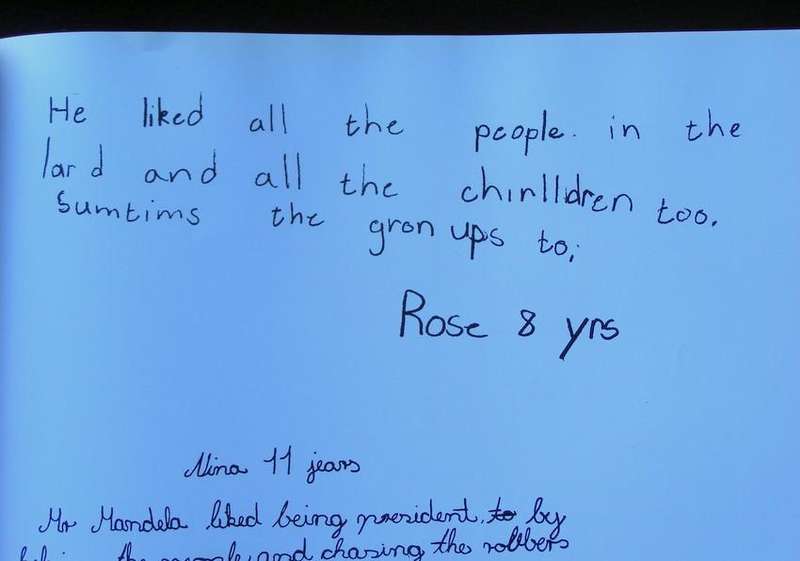 He liked all the people. in the
lard and all the chirlldren too.
Sumtims the gron ups to;
Rose 8 yrs
Nina 11 jears
Mr Mandela liked being president, to by
the people and chasing the robbers